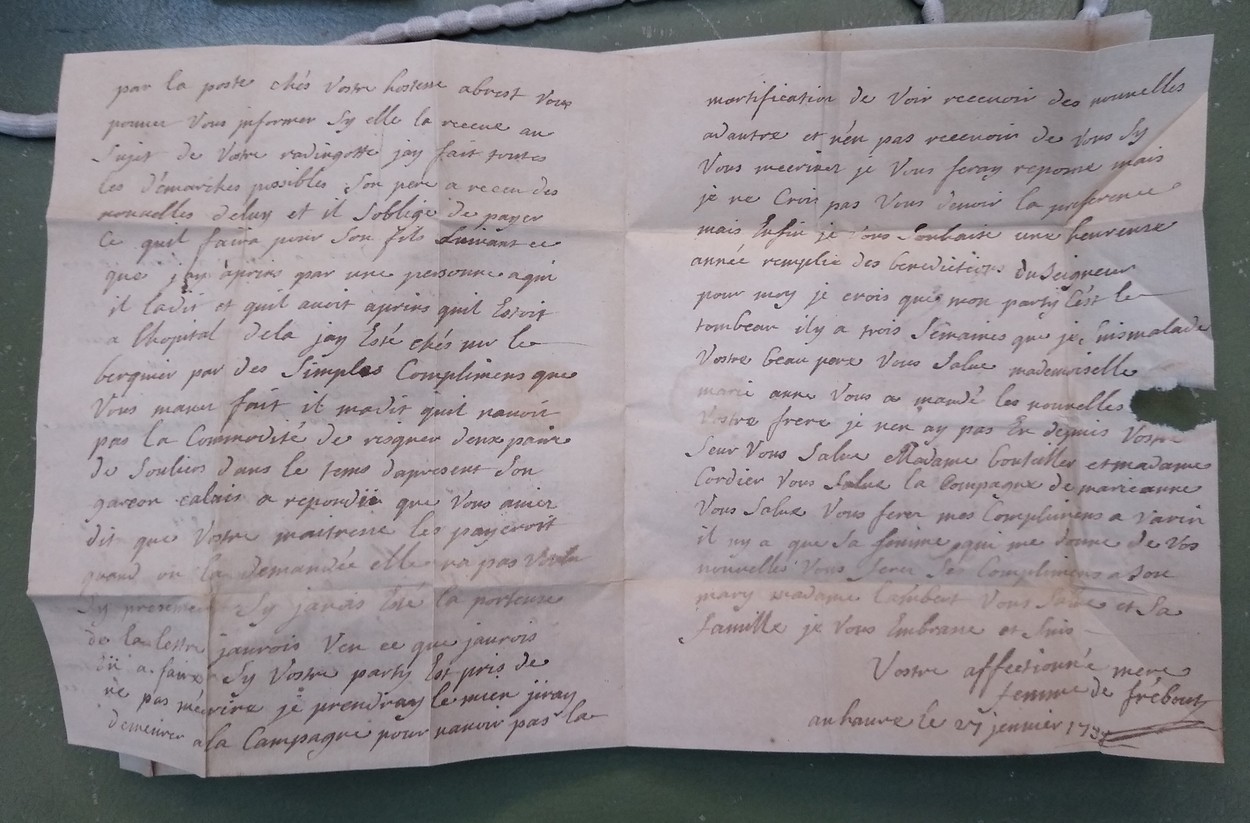 par la poste chés Vostre hostesse abrest vous
pouver Vous jnformer Sy elle la receue au
Sujet de Vostre radingotte jay fait toutes
les démarches possibles Son pere a receu des
nouvelles deluy et il Soblige de payer
ce quil faira pour Son fils Suivant ce
que jay apris par une personne aqui
il ladit et quil avoit apris quil Estoit
a lhopital dela jay Esté chés mr le
berquier par des Simples Complimens que
Vous maves fait il madit quil navoit
pas la Commodité de risquer deux paire
de Souliers dans le tems dapresent Son
garcon calais a repondu que Vous avier
dit que Vostre maitresse les payeroit
quand on la demandée elle na pas Voulu
Sy presenter Sy javais Esté la porteuse
de la lettre jaurois Veu ce que jaurois
Eü a faire Sy Vostre party Est pris de
ne pas mécrire je prendray le mien jiray
demeurer ala Campagne pour navoir pas la
mortification de Voir recevoir des nouvelles
adautre et nen pas recevoir de Vous Sy
Vous mecrivez je Vous feray reponse mais
je ne Crois pas Vous devoir la preference
mais Enfin je Vous Souhaite une heureuse
année remplie des benedictions du Seigneur
pour moy je crois que mon party Cést le
tombeau il y a trois Semaines que je Suis malade
Vostre beau pere Vous Salue mademoiselle
marie anne Vous a mandé les nouvelles
Vostre frere je nen ay pas Eu depuis Vostre
Seur Vous Salue Madame bouteiller et madame
Cordier Vous Salue la Compagne de marie anne
Vous Salue Vous ferer mes Complimens a Varin
il ny a que Sa femme qui me donne de Vos
nouvelles Vous ferer Ses Complimens a Son
mary madame Cambert Vous Salue et Sa
famille je Vous Embrasse et Suis
Vostre affectionnée mere
femme de frebourg
au havre le 27 jenvier